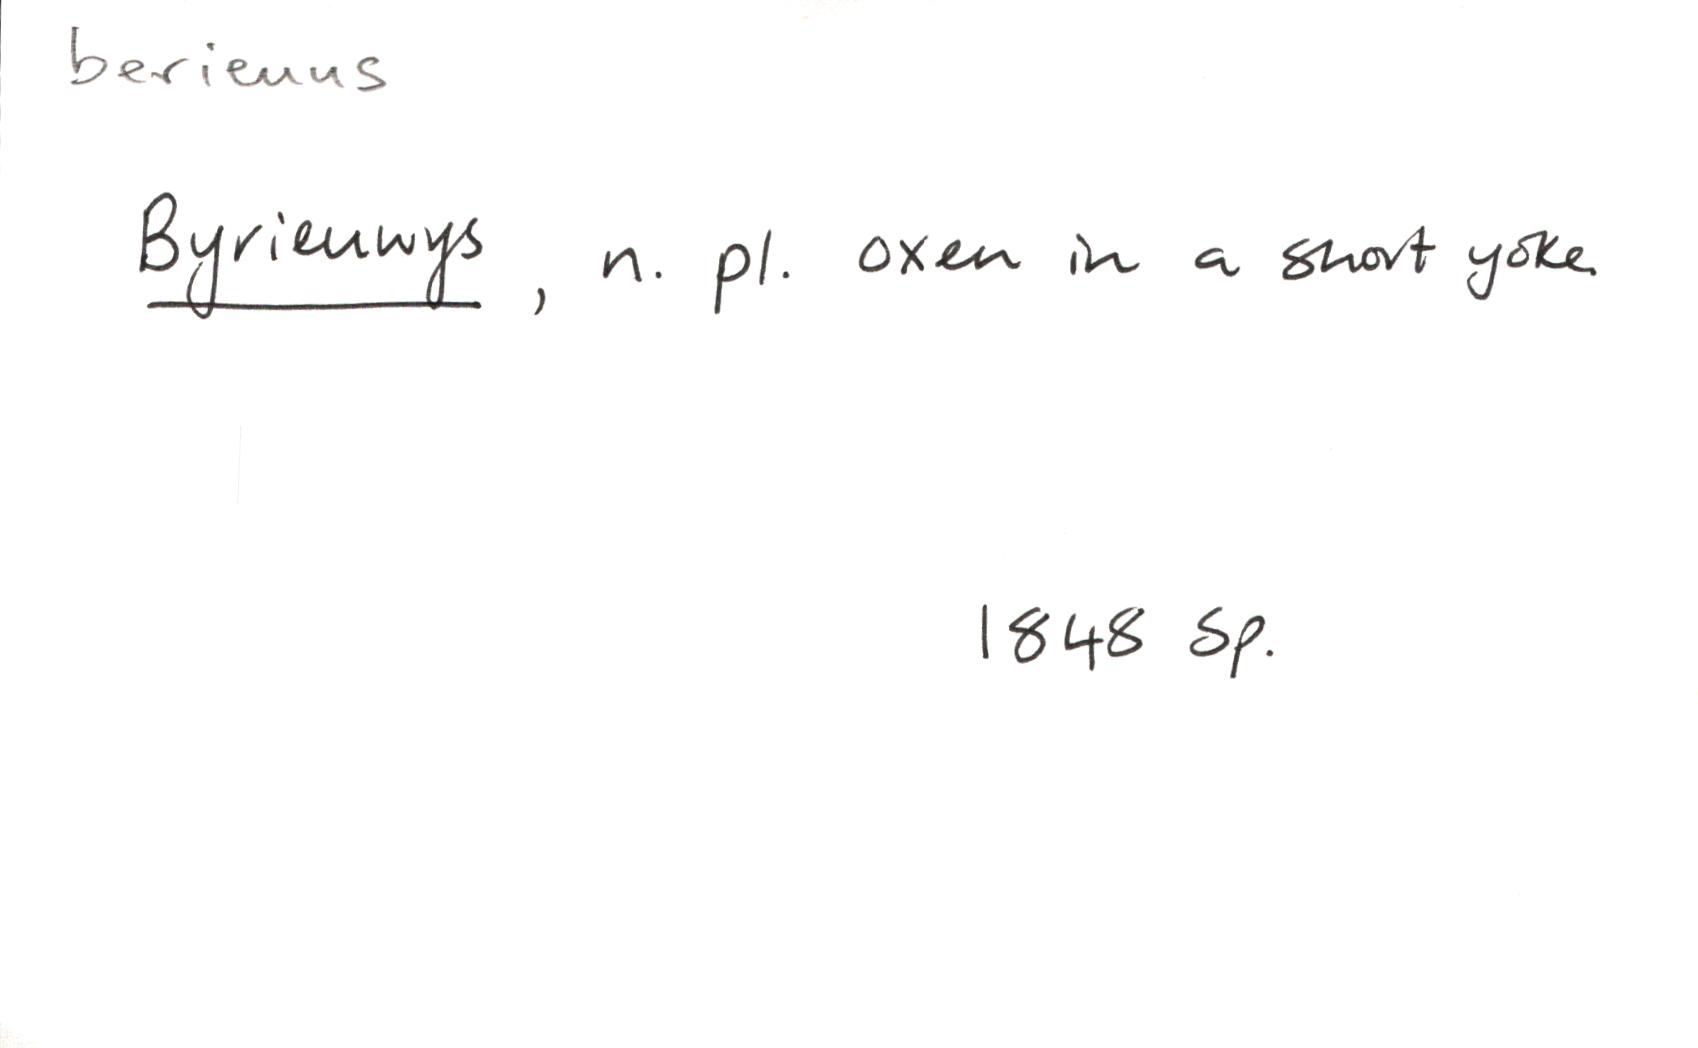 berieuus
Byrieuwys, n. pl. oxen in a short yoke.
1848 Sp.